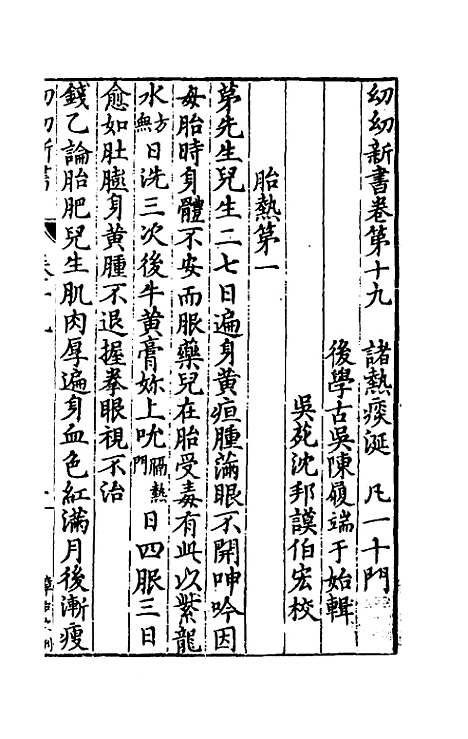 幼幼新書卷第十九 諸熱痰涎 凡一十門
後學古吳陳履端于始輯
吳苑沈邦謨伯宏校
胎熱第一
茅先生兒生二七日遍身黃疸腫滿眼不開呻吟因
母胎時身體不安而服藥兒在胎受毒有此以紫龍
水方無日洗三次後牛黃膏妳上吮隔熱門日四服三日
愈如肚膨身黃腫不退握拳眼視不治
錢乙論胎肥兒生肌肉厚遍身血色紅滿月後漸瘦
幼幼新書 卷十九 一